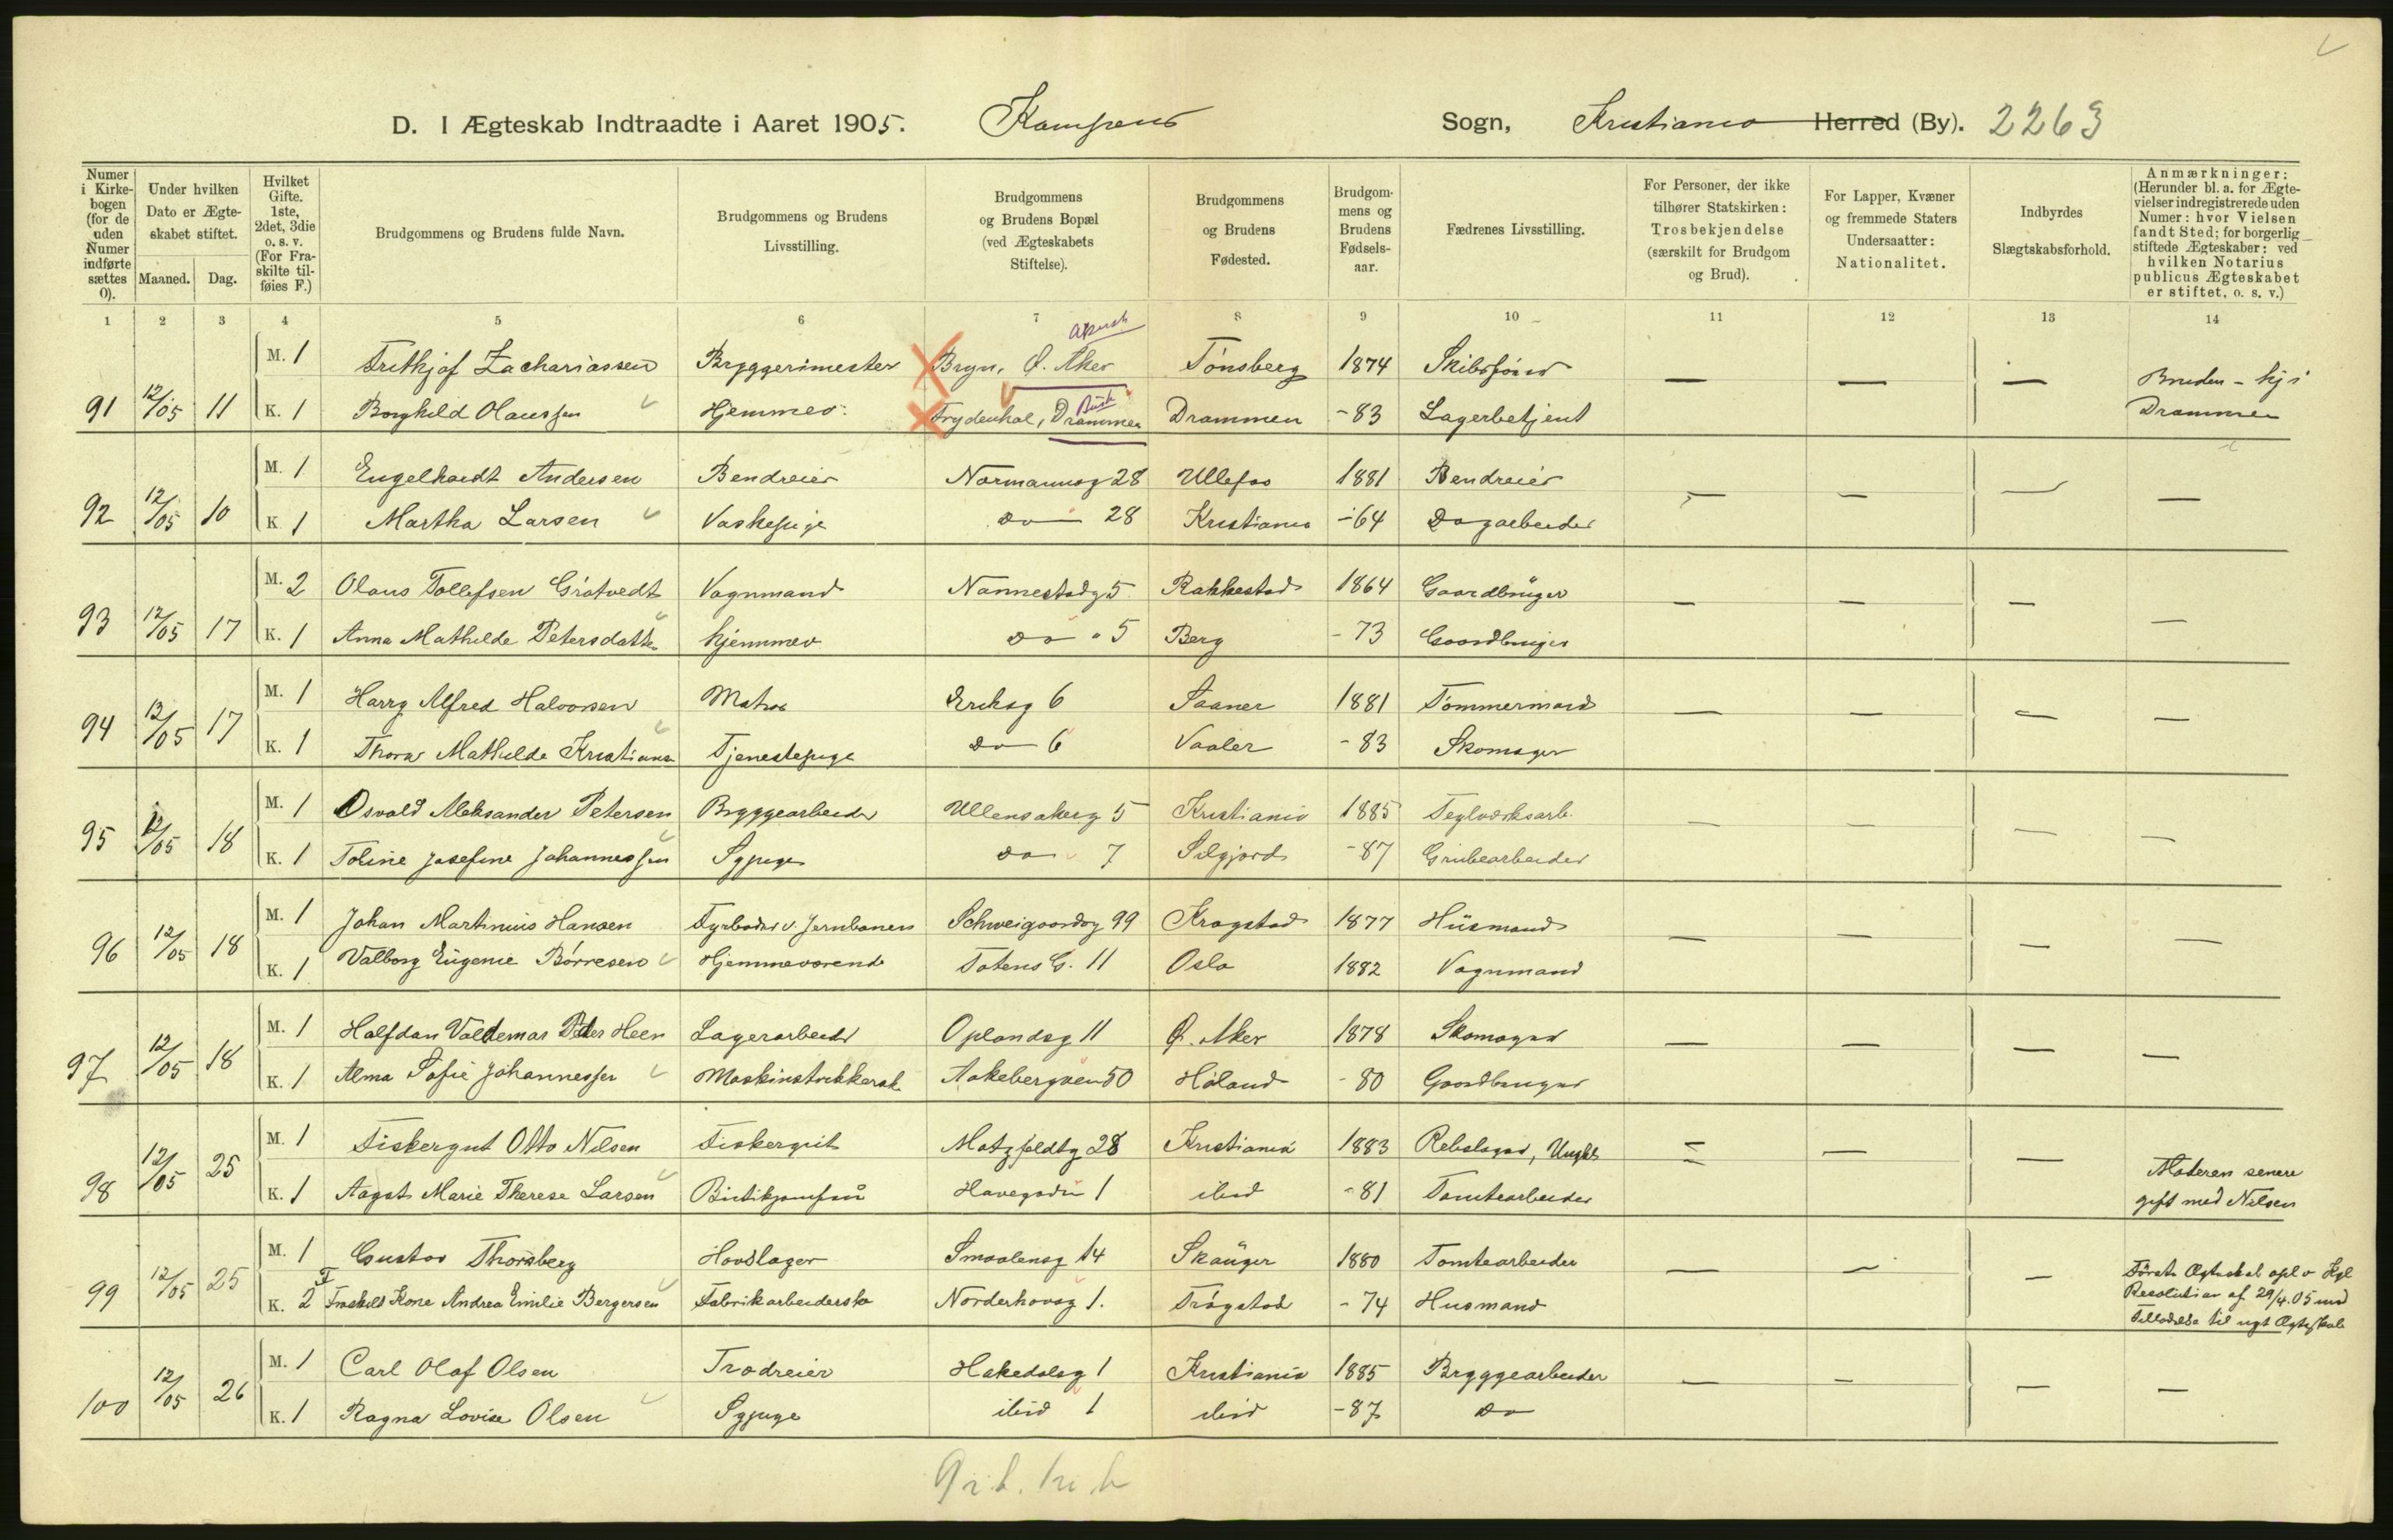 D. I Ægteskab Indtraadte i Aaret 1905. Kampens Sogn, Kristiania Herred (By). 2263
Numer i Kirkebogen (for de uden Numer indførte sættes 0). Under hvilken Dato er Ægteskabet stiftet. Maaned. Dag. Hvilket Gifte. 1ste, 2det, 3die o. s. v. (For Fraskilte tilføies F.) Brudgommens og Brudens fulde Navn. Brudgommens og Brudens Livsstilling. Brudgommens og Brudens Bopæl (ved Ægteskabets Stiftelse). Brudgommens og Brudens Fødested. Brudgommens og Brudens Fødselsaar. Fædrenes Livsstilling. For Personer, der ikke tilhører Statskirken: Trosbekjendelse (særskilt for Brudgom og Brud). For Lapper, Kvæner og fremmede Staters Undersaatter: Nationalitet. Indbyrdes Slægtskabsforhold. Anmærkninger: (Herunder bl. a. for Ægtevielser indregistrerede uden Numer: hvor Vielsen fandt Sted; for borgerlig stiftede Ægteskaber: ved hvilken Notarius publicus Ægteskabet er stiftet, o. s. v.)
1 2 3 4 5 6 7 8 9 10 11 12 13 14
M. 1 Frithjof Zachariassen Bryggerimester Bryn, Ø. Aker Tønsberg 1874 — — — Bruden - hj i
91 12/05 11 K. 1 Borghild Olaussen Hjemmev. Frydenhal, Drammen Drammen -83 Lagerbetjent Drammen
M. 1 Engelhardt Andersen Bendreier Normannsg 28 Ullefos 1881 Bendreier — — — —
92 12/05 10 K. 1 Martha Larsen Vaskepige do 28 Kristiania -64 Dagarbeider
M. 2 Olaus Tollefsen Grøtvedt Vognmand Nannestadg 5 Rakkestad 1864 Gaardbruger — — — —
93 12/05 17 K. 1 Anna Mathilde Petersdatter hjemmev do " 5 Berg -73 Gaardbruger
M. 1 Harry Alfred Halvorsen Matros Eriksg 6 Saaner 1881 Tømmermand — — — —
94 12/05 17 K. 1 Thora Mathilde Kristiansen Tjenestepige do 6 Vaaler -83 Skomager
M. 1 Osvald Aleksander Petersen Bryggearbeider Ullensakerg 5 Kristiania 1885 Teglverksarb. — — — —
95 12/05 18 K. 1 Toline Josefine Johannessen Sypige do 7 Silgjord -87 Grubearbeider
M. 1 Johan Martinius Hansen Fyrbøder v. Jernbanen Schweigaardsg 99 Kragstad 1877 Husmand — — — —
96 12/05 18 K. 1 Valborg Eugenie Børresen Hjemmeværende Totens G. 11 Oslo 1882 Vognmand
M. 1 Halfdan Valdemar Peder Heen Lagerarbeider Oplandsg 11 Ø. Aker 1878 Skomager — — — —
97 12/05 18 K. 1 Alma Sofie Johannessen Maskinstrikkersk. Aakebergveien 50 Høland -80 Gaardbruger
M. 1 Fiskergut Otto Nilsen Fiskergut Motzfeldtg 28 Kristiania 1883 Rebslager, Ungk. — — — Moderen senere
98 12/05 25 K. 1 Aagot Marie Therese Larsen Butikjomfru Havegaden 1 ibid -81 Tomtearbeider gift med Nilsen
M. 1 Gustav Thorsberg Hovslager Smaalensg 14 1880 Tomtearbeider — — — Første Ægteskab opl v Kgl
99 12/05 25 K. 2 F Fraskilt Kone Andrea Emilie Bergersen Fabrikarbeiderske Norderhovsg 1. Trøgstad -74 Husmand Resolution af 29/4.05 med
Tilladelse til nyt Ægteskab
M. 1 Carl Olaf Olsen Trædreier Hakedalsg 1 Kristiania 1885 Bryggearbeider — — — —
100 12/05 26 K. 1 Ragna Lovise Olsen Sypige ibid 1 ibid -87 do